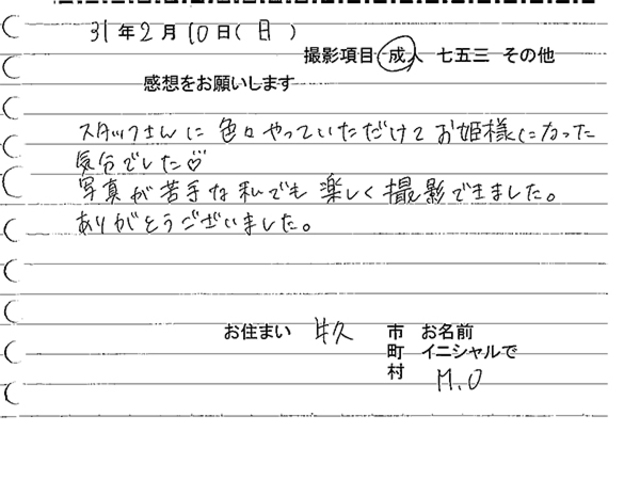 31年2月10日(日)
撮影項目 成人 七五三 その他
感想をお願いします
スタッフさんに色々やっていただけてお姫様になった
気分でした♡
写真が苦手な私でも楽しく撮影できました。
ありがとうございました。
お住まい 牛久 市 お名前
町 イニシャルで
村 M.O